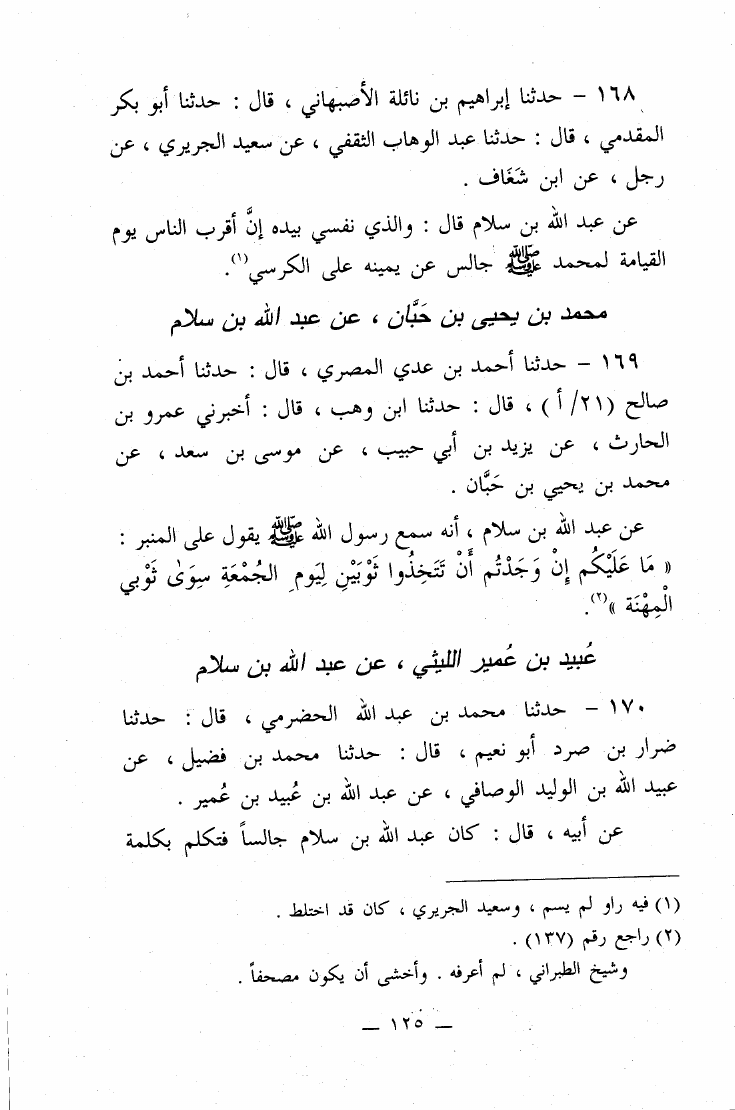 ١٦٨ – حدثنا إبراهيم بن نائلة الأصبهاني ، قال : حدثنا أبو بكر
المقدمي ، قال : حدثنا عبد الوهاب الثقفي ، عن سعيد الجريري ، عن
رجل ، عن ابن شَغَاف .
عن عبد الله بن سلام قال : والذي نفسي بيده إنَّ أقرب الناس يوم
القيامة لمحمد ﷺ جالس عن يمينه على الكرسي(١).
محمد بن يحيى بن حَبَّان ، عن عبد الله بن سلام
١٦٩ – حدثنا أحمد بن عدي المصري ، قال : حدثنا أحمد بن
صالح (٢١/ أ) ، قال : حدثنا ابن وهب ، قال : أخبرني عمرو بن
الحارث ، عن يزيد بن أبي حبيب ، عن موسى بن سعد ، عن
محمد بن يحيي بن حَبَّان .
عن عبد الله بن سلام ، أنه سمع رسول الله ﷺ يقول على المنبر :
« مَا عَلَيْكُم إِنْ وَجَدْتُم أَنْ تَتَخِذُوا ثَوْبَيْنِ لِيَومِ الجُمْعَةِ سِوَىٰ ثَوْبي
الْمِهْنَة »(٢).
عُبيد بن عُمير الليثي ، عن عبد الله بن سلام
١٧٠ – حدثنا محمد بن عبد الله الحضرمي ، قال : حدثنا
ضرار بن صرد أبو نعيم ، قال : حدثنا محمد بن فضيل ، عن
عبيد الله بن الوليد الوصافي ، عن عبد الله بن عُبيد بن عُمير .
عن أبيه ، قال : كان عبد الله بن سلام جالساً فتكلم بكلمة
(١) فيه راو لم يسم ، وسعيد الجريري ، كان قد اختلط .
(٢) راجع رقم (١٣٧) .
وشيخ الطبراني ، لم أعرفه . وأخشى أن يكون مصحفاً .
— ١٢٥ —